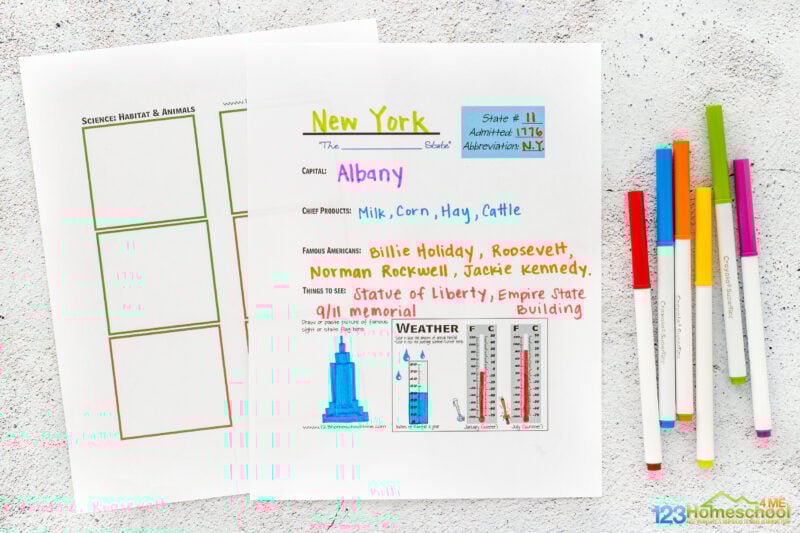 SCIENCE: HABITAT & ANIMALS
New York
"The ____________ State"
State # 11
Admitted: 1776
Abbreviation: N.Y.
CAPITAL: Albany
CHIEF PRODUCTS: Milk, Corn, Hay, Cattle
FAMOUS AMERICANS: Billie Holiday, Roosevelt,
Norman Rockwell, Jackie Kennedy.
THINGS TO SEE: Statue of Liberty, Empire State
9/11 memorial Building
Draw or paste picture of famous
sight or state flag here.
WEATHER
F C F C
January (winter) July (summer)
Crayola SuperTips
123Homeschool4ME